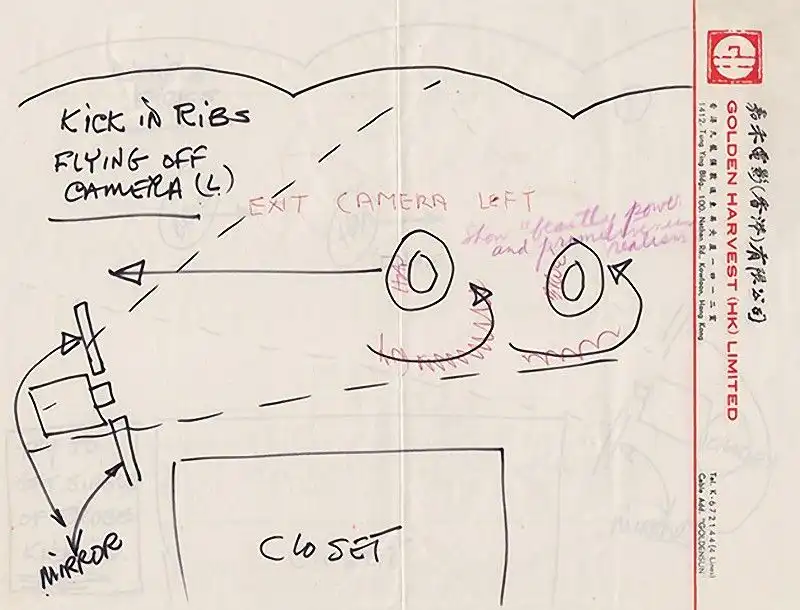 KICK IN RIBS
FLYING OFF
CAMERA (L)
EXIT CAMERA LEFT
Show "beastly power
and
realism
MIRROR
CLOSET
GH
嘉禾電影(香港)有限公司
GOLDEN HARVEST (HK) LIMITED
香港九龍彌敦道東英大廈一四一二室
1412, Tung Ying Bldg., 100, Nathan Rd., Kowloon, Hong Kong
Tel. K-672144 (4 Lines)
Cable Add. "GOLDENSUN"